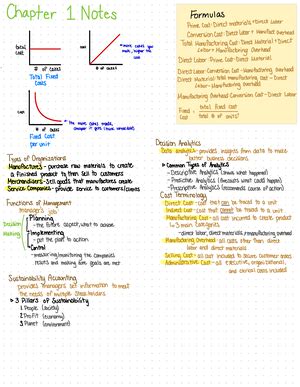 Chapter 1 Notes
total
cost
# of cases
Total Fixed
Costs
cost
# of cases
* more cases you
make, higher the
cost
# of cases
Fixed Cost
per unit
* The more cases made,
cheaper it gets (more consistent)
Types of Organizations
Manufacturers - purchase raw materials to create
a finished product to then sell to customers
Merchandisers - sell goods that manufacturers create
Service Companies - provide service to customers/clients
Functions of Management
manager's job
Decision
Making
Planning
- the future aspect, what to achieve
Implementing
- put the plan to action
Control
- measuring/monitoring the companies
results and making sure goals are met
Sustainability Accounting
provides managers set information to meet
the needs of multiple stakeholders
3 Pillars of Sustainability
1 People (society)
2 Profit (economy)
3 Planet (environment)
Formulas
Prime Cost = Direct materials + Direct Labor
Conversion Cost = Direct Labor + Manufact. overhead
Total Manufacturing Cost = Direct Material + Direct
Labor + Manufacturing Overhead
Direct Labor = Prime Cost - Direct Material
Direct Labor = Conversion Cost - Manufacturing Overhead
Direct Material = total Manufacturing cost - Direct
Labor - Manufacturing Overhead
Manufacturing Overhead = Conversion Cost - Direct Labor
Fixed
Cost
total fixed cost
# of units
Decision Analytics
Data analytics - provides insights from data to make
better business decisions
Common Types of Analytics
- Descriptive Analytics (shows what happened)
- Predictive Analytics (forecasts what could happen)
- Prescriptive Analytics (recommends course of action)
Cost Terminology
Direct Cost - cost that can be traced to a unit
Indirect Cost - cost that cannot be traced to a unit
Manufacturing Cost - all cost incurred to create product
in 3 main categories
- direct labor, direct materials, manufacturing overhead
Manufacturing Overhead - all costs other than direct
labor and direct materials
Selling Cost - all cost included to secure customer orders
Administrative Cost - all executive, organizational,
and clerical costs included